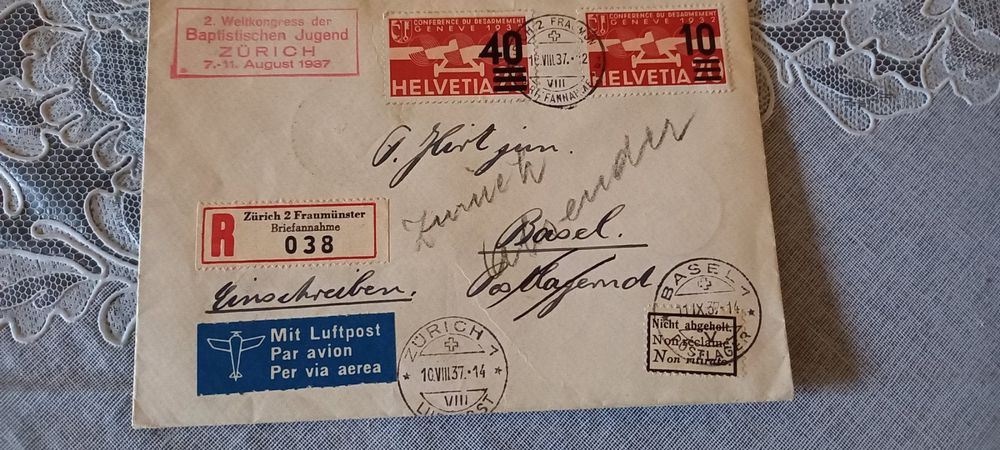 2. Weltkongress der
Baptistischen Jugend
ZÜRICH
7.-11. August 1937
CONFERENCE DU DESARMEMENT
GENEVE 1932
40
HELVETIA
CONFERENCE DU DESARMEMENT
GENEVE 1932
10
HELVETIA 20
10.VIII.37.-12
VIII
BRIEFANNAHME
Hirt jun.
Zurück
Absender
Basel.
Postlagernd
R
Zürich 2 Fraumünster
Briefannahme
038
Einschreiben.
Mit Luftpost
Par avion
Per via aerea
ZÜRICH 1
10.VIII.37.-14
VIII
LUFTPOST
BASEL 1
11.IX.37.-14
POSTLAGER
Nicht abgeholt.
Non réclamé
Non ritirato.